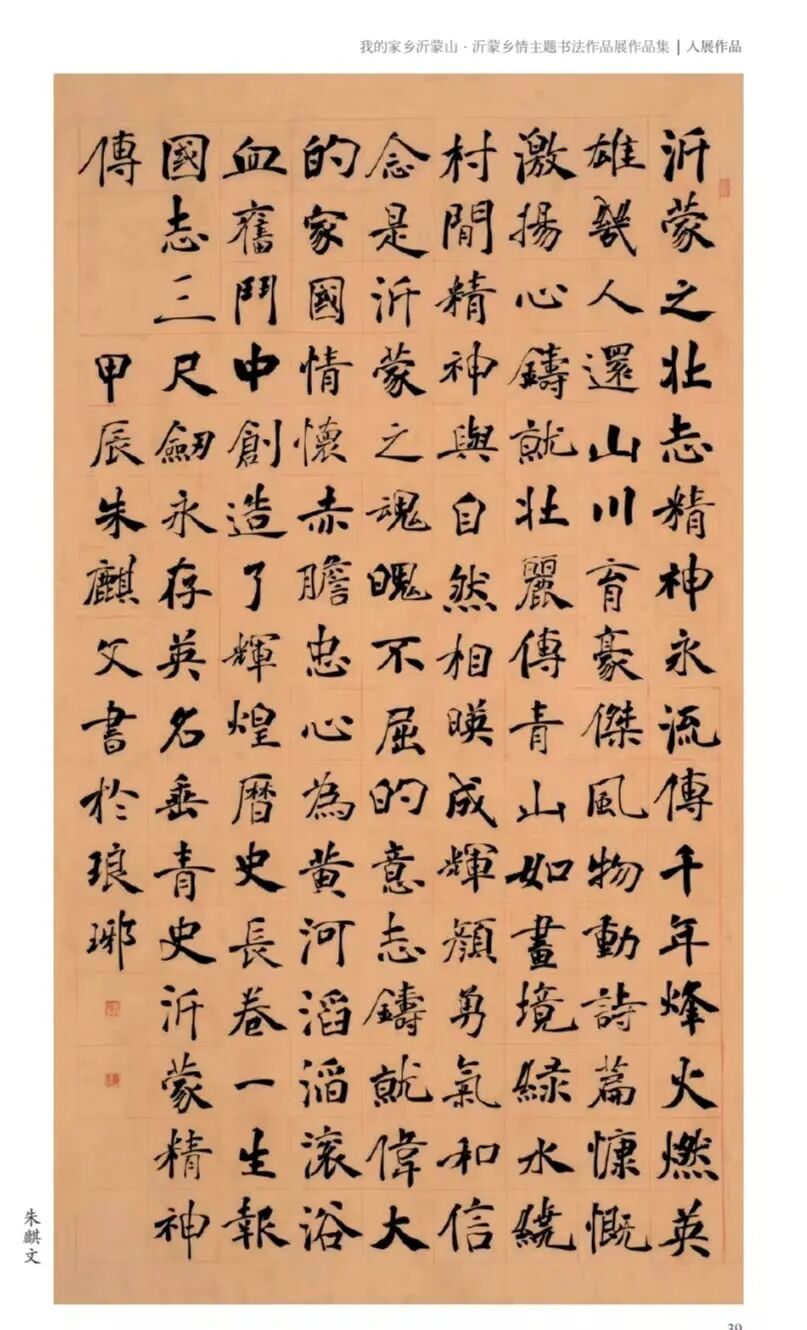 我的家乡沂蒙山·沂蒙乡情主题书法作品展作品集 | 入展作品
沂蒙之壯志精神永流傳千年烽火燃英
雄幾人還山川育豪傑風物動詩篇慷慨
激揚心鑄就壯麗傳青山如畫境緑水繞
村間精神與自然相暎成輝顔勇氣和信
念是沂蒙之魂魄不屈的意志鑄就偉大
的家國情懷赤膽忠心為黄河滔滔滚浴
血奮鬥中創造了輝煌曆史長卷一生報
國志三尺劒永存英名垂青史沂蒙精神
傳 甲辰朱麒文書於琅琊
朱麒文
39